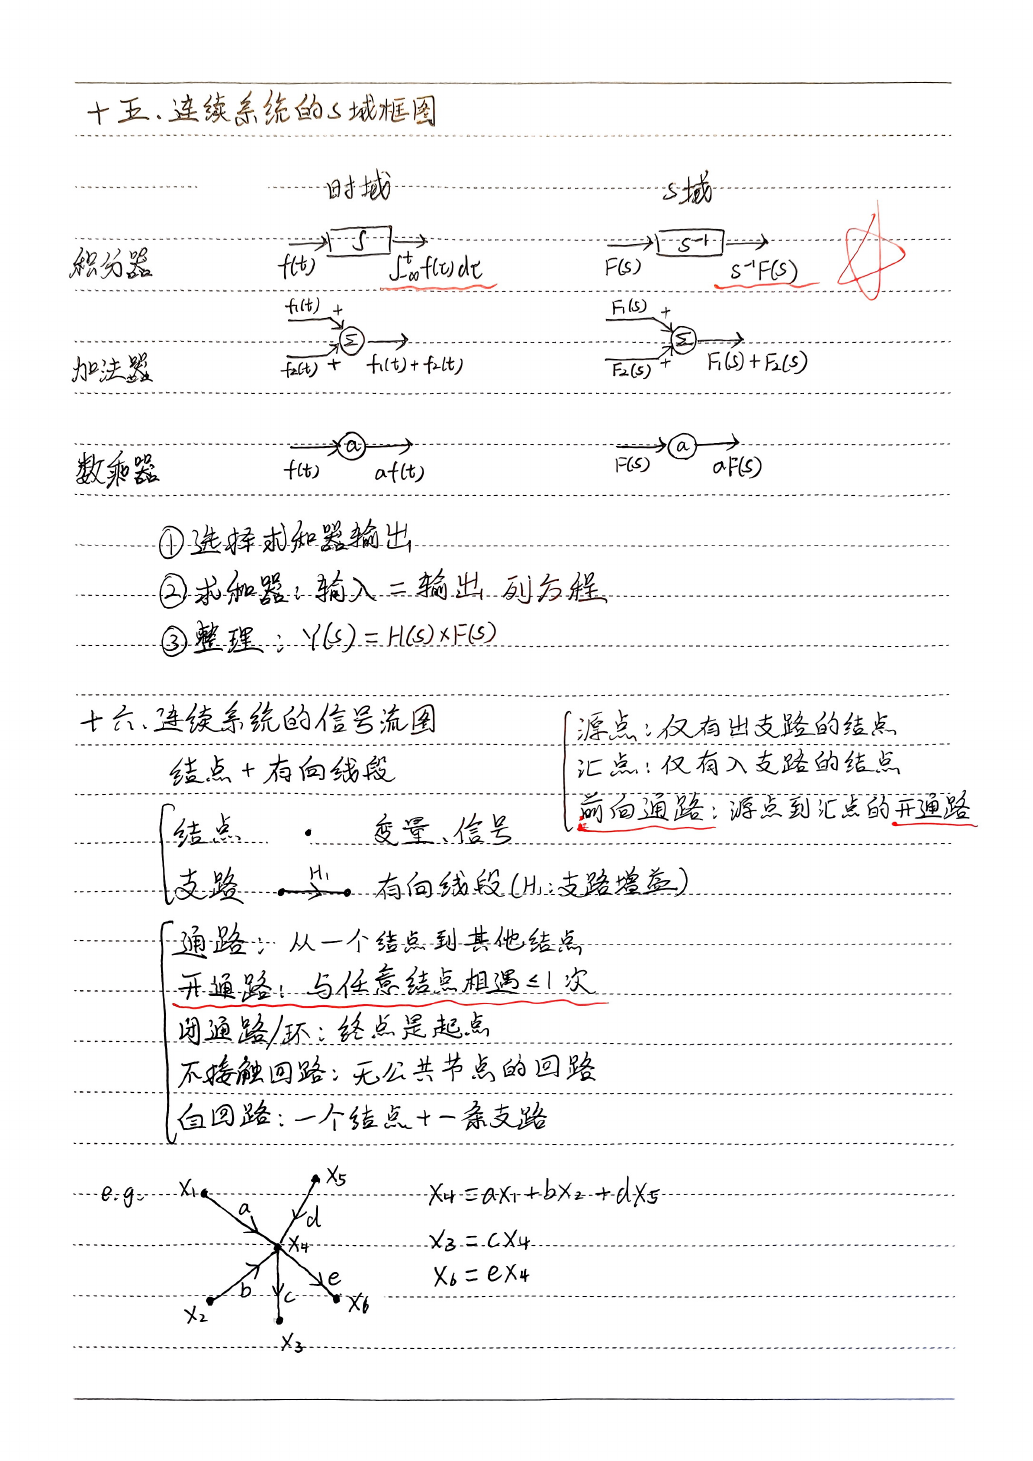 十五、连续系统的S域框图
时域 S域
积分器 f(t) ∫ ∫₋∞ᵗf(τ)dτ F(S) S⁻¹ S⁻¹F(S)
加法器 f₁(t) + f₂(t) + Σ f₁(t)+f₂(t) F₁(S) + F₂(S) + Σ F₁(S)+F₂(S)
数乘器 f(t) a af(t) F(S) a aF(S)
①选择求和器输出
②求和器：输入=输出 列方程
③整理：Y(S)=H(S)×F(S)
十六、连续系统的信号流图
结点+有向线段
源点：仅有出支路的结点
汇点：仅有入支路的结点
前向通路：源点到汇点的开通路
结点 · 变量、信号
支路 H₁ 有向线段(H₁：支路增益)
通路：从一个结点到其他结点
开通路：与任意结点相遇≤1次
闭通路/环：终点是起点
不接触回路：无公共节点的回路
自回路：一个结点+一条支路
e.g. X₁ a X₅ d X₄ b X₂ c X₃ e X₆
X₄=aX₁+bX₂+dX₅
X₃=cX₄
X₆=eX₄